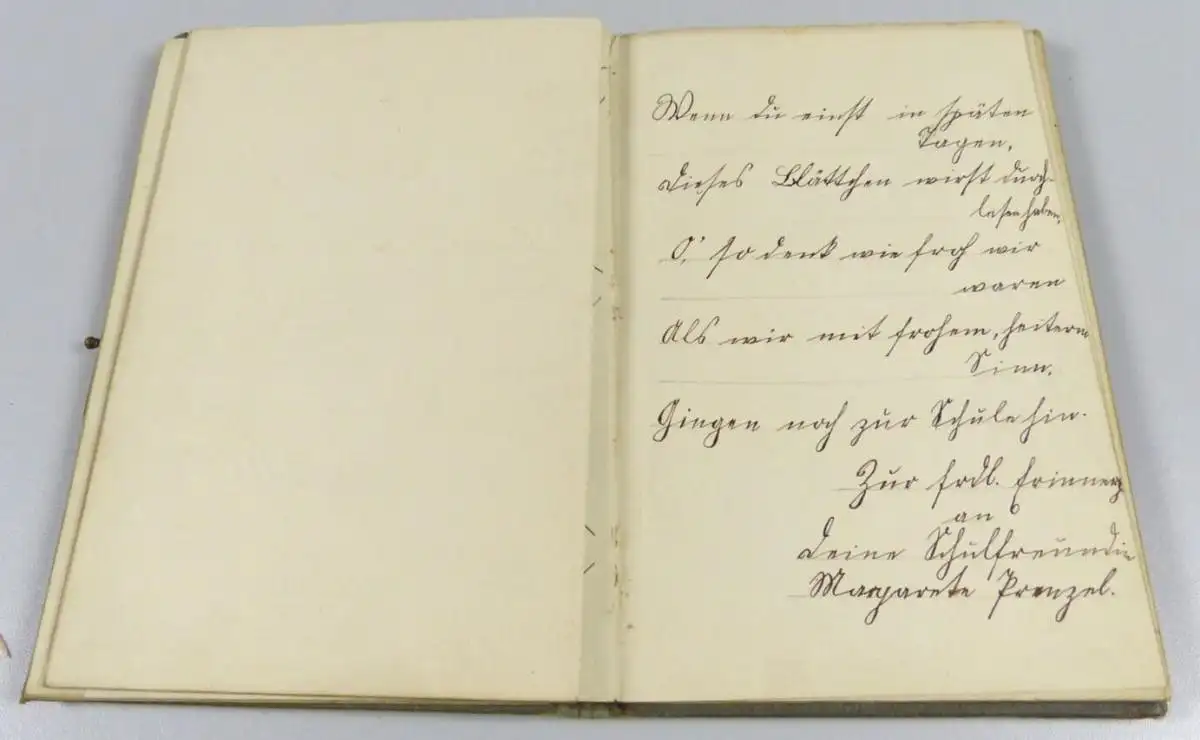 Wenn du einst in späten
Tagen,
Dieses Blättchen wirst durch-
lesen haben,
O,' so denk wie froh wir
waren
Als wir mit frohem, heiterm
Sinn,
Gingen noch zur Schule hin.
Zur frdl. Erinnerg
an
Deine Schulfreundin
Margarete Prenzel.